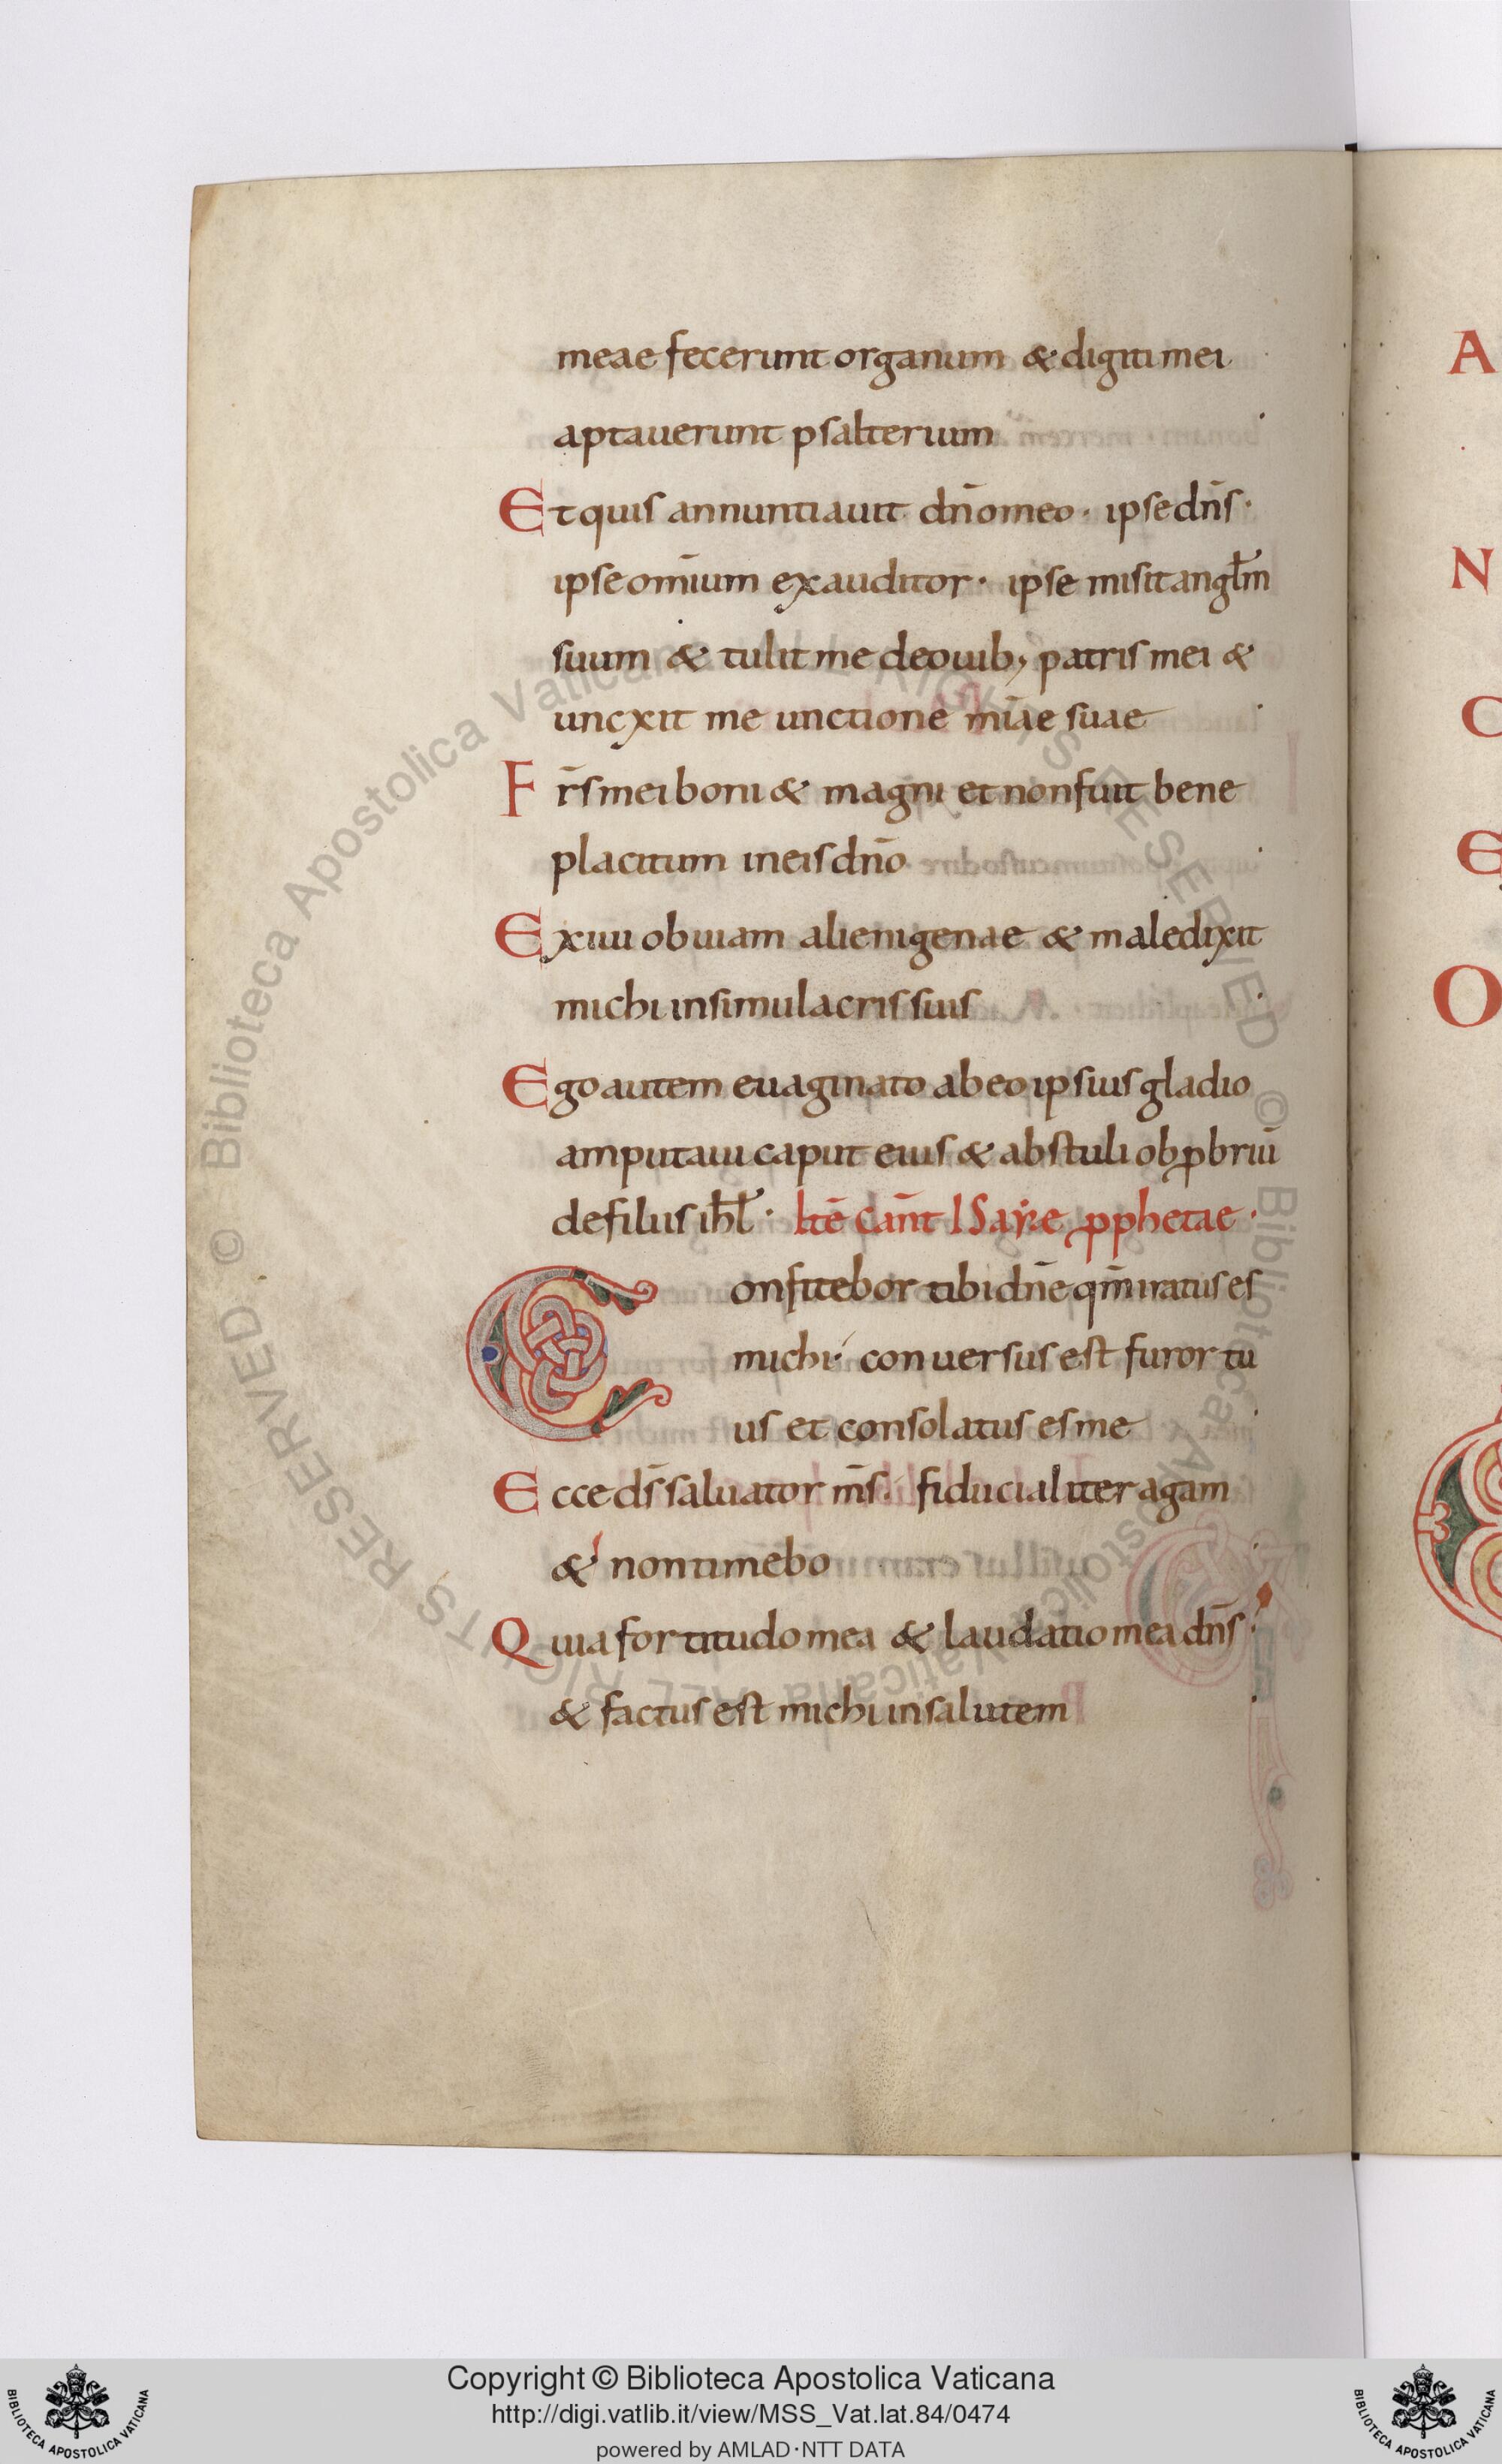 meae fecerunt organum & digiti mei
aptauerunt psalterium
Et quis annuntiauit dn̄o meo · ipse dn̄s ·
ipse om̄ium exauditor · ipse misit angl̄m
suum & tulit me de ouib; patris mei &
uncxit me unctione mīae suae
Fr̄s mei boni & magni et non fuit bene
placitum in eis dn̄o
Exiui obuiam alienigenae & maledixit
michi in simulacris suis
Ego autem euaginato ab eo ipsius gladio
amputaui caput eius & abstuli obꝓbriū
de filiis ih̄l · Itē cān̄t ISayae ꝓphetae ·
Confitebor tibi dn̄e qm̄ iratus es
michi · conuersus est furor tu
us et consolatus es me
Ecce ds̄ saluator ms̄ · fiducialiter agam
& non timebo
Quia fortitudo mea & laudatio mea dn̄s ·
& factus est michi in salutem
A
N
C
E
O
© Biblioteca Apostolica Vaticana ALL RIGHTS RESERVED © Biblioteca Apostolica Vaticana ALL RIGHTS RESERVED
Copyright © Biblioteca Apostolica Vaticana
http://digi.vatlib.it/view/MSS_Vat.lat.84/0474
powered by AMLAD·NTT DATA
BIBLIOTECA APOSTOLICA VATICANA
BIBLIOTECA APOSTOLICA VATICANA